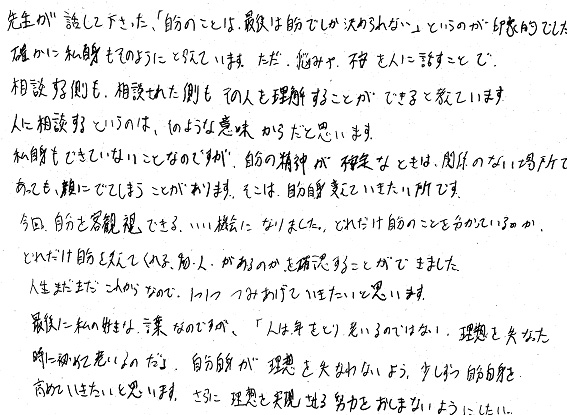 先生が話して下さった、「自分のことは、最後は自分でしか決められない」というのが印象的でした
確かに私自身もそのように考えています。ただ、悩みや、不安を人に話すことで、
相談する側も、相談された側もその人を理解することができると考えています
人に相談するというのは、そのような意味からだと思います。
私自身もできていないことなのですが、自分の精神が不安定なときは、関係のない場所で
あっても、顔にでてしまうことがあります。そこは、自分自身変えていきたい所です。
今回、自分を客観視できる、いい機会になりました。どれだけ自分のことを分かっているのか、
どれだけ自分を支えてくれる、人があるのかを確認することができました
人生まだまだこれからなので、1つ1つつみあげていきたいと思います。
最後に私の好きな言葉なのですが、「人は年をとり老いるのではない、理想を失なった
時に初めて老いるのだ」、自分自身が理想を失なわないよう、少しずつ自分自身を
高めていきたいと思います。さらに理想を実現させる努力をおしまないようにしたい。